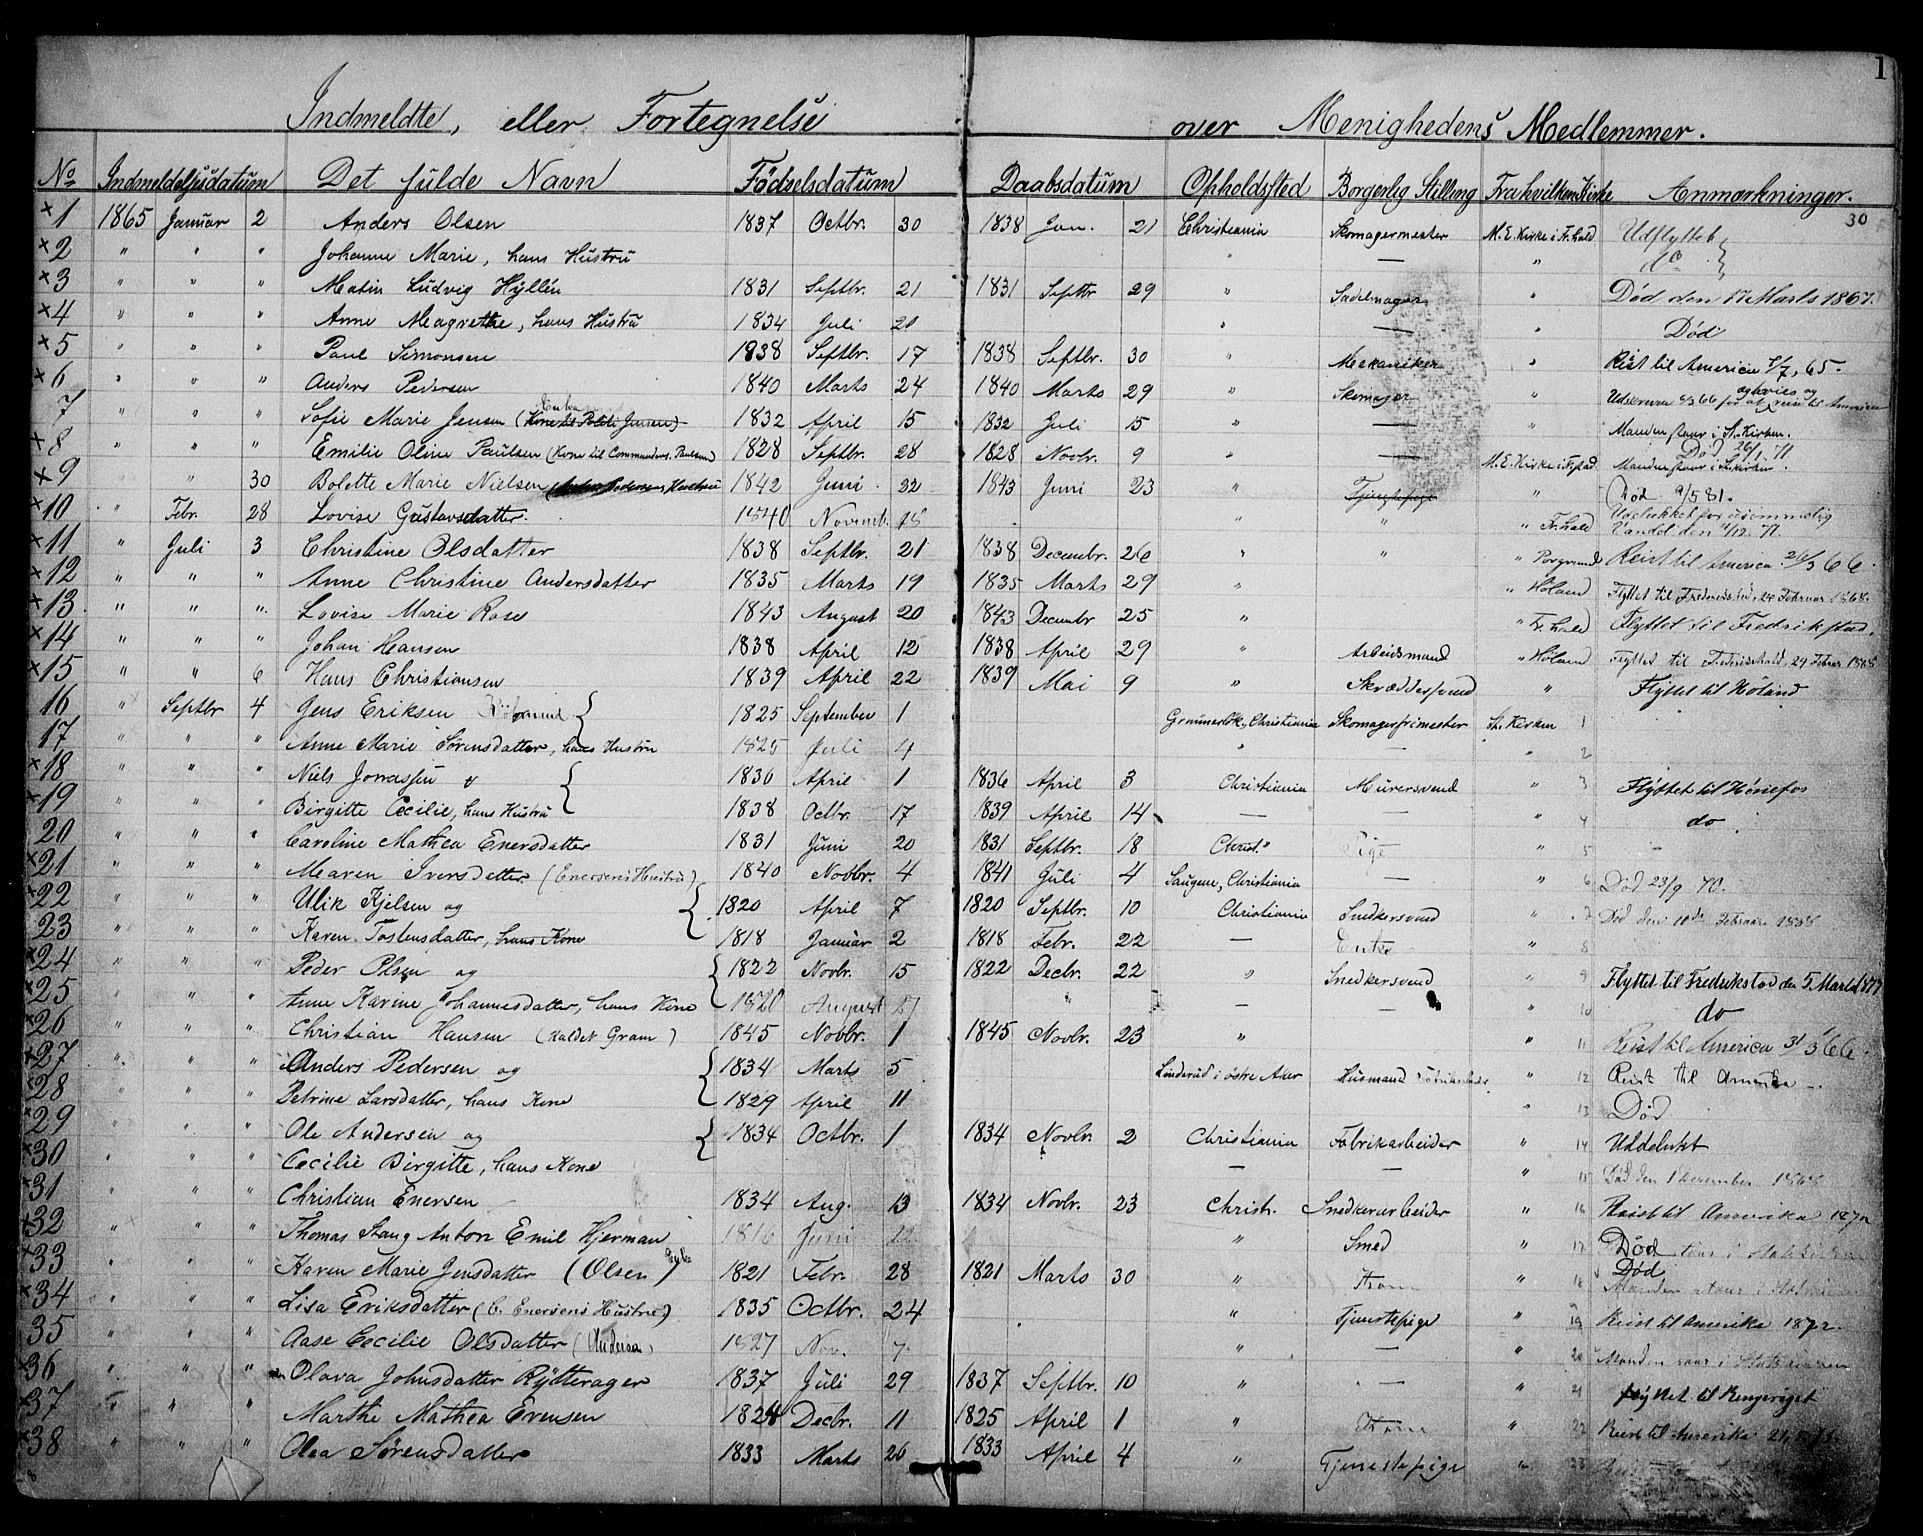 1
Indmeldte, eller Fortegnelse over Menighedens Medlemmer.
No Indmeldelsesdatum Det fulde Navn Födselsdatum Daabsdatum Opholdssted Borgerlig Stilling Fra hvilken Kirke Anmærkninger.
30
x 1 1865 Januar 2 Anders Olsen 1837 Octbr. 30 1838 Jan. 21 Christiania Skomagermester M. E. Kirke i Fr.hald Udflyttet
x 2 " " " Johanne Marie, hans Hustru " — " do
x 3 " " " Martin Ludvig Hyllén 1831 Septbr. 21 1831 Septbr 29 " Sadelmager " Död den 17 Marts 1867.
x 4 " " " Anne Magrethe, hans Hustru 1834 Juli 21 " — " Död
x 5 " " " Paul Simonsen 1838 Septbr. 17 1838 Septbr. 30 " Mekaniker " Reist til America /7, 65.
x 6 " " " Anders Pedersen 1840 Marts 24 1840 Marts 29 " Skomager " Udskreven /3 66 for at reise til America
7 " " " Sofie Marie Jensen (Enke Kone til Jensen) 1832 April 15 1832 Juli 15 " — " Manden staar i St. Kirken.
x 8 " " " Emilie Oline Paulsen (Kone til Commanders. Paulsen) 1828 Septbr. 28 1828 Novbr. 9 " — M. E. Kirke i Fr.stad Död 26/1 71 Manden staar i St.kirken.
x 9 " " 30 Bolette Marie Nielsen (Anders Pedersens Hustru 1842 Juni 22 1843 Juni 23 " Tjenstepige " Död 9/5 81.
x 10 " Febr. 28 Lovise Gustavsdatter. 1840 Novemb. 18 " " " Fr.hald Udelukket for usömmelig Vandel den /12 71.
x 11 " Juli 3 Christine Olsdatter 1838 Septbr. 21 1838 Decembr. 26 " " " Porsgrund Reist til America /3 66.
x 12 " " " Anne Christine Andersdatter 1835 Marts 19 1835 Marts 29 " " Höland Flyttet til Frederikshald, 24 Februar 1868.
x 13 " " " Lovise Marie Rose 1843 August 20 1843 Decembr 25 " " Fr.hald Flyttet til Fredrikstad.
x 14 " " " Johan Hansen 1838 April 12 1838 April 29 " Arbeidsmand " Höland Flyttet til Frederikshald, 24 Februar 1868
x 15 " " 6 Hans Christiansen 1839 April 22 1839 Mai 9 " Skræddersvend " Flyttet til Höland
16 " Septbr 4 Jens Eriksen 1825 September 1 Grünnerlök., Christiania Skomagerfrimester St. Kirken 1
17 " " " Anne Marie Sørensdatter, hans Hustru 1825 Juli 4 " — " 2
x 18 " " " Niels Jonassen o 1836 April 1 1836 April 3 Christiania Murersvend " 3 Flyttet til Hönefos
x 19 " " " Birgitte Cecilie, hans Hustru 1838 Octbr. 17 1839 April 14 — — " 4 do
20 " " " Caroline Mathea Enersdatter 1831 Juni 20 1831 Septbr. 18 Christ." Pige " 5 -
x 21 " " " Maren Iversdatter (Enersens Hustru) 1840 Novbr. 4 1841 Juli 4 Saugene, Christiania — " 6 Död 23/9 70.
x 22 " " " Ulik Kjelsen og 1820 April 7 1820 Septbr. 10 Christiania Snedkersvend " 7 Död den 10de Februar 1868
23 " " " Karen Tostensdatter, hans Kone 1818 Januar 2 1818 Febr. 22 — Enke " 8
x 24 " " " Peder Olsen og 1822 Novbr. 15 1822 Decbr. 22 " Snedkersvend " 9 Flyttet til Fredrikstad den 5 Marts 1877
x 25 " " " Anne Karine Johannesdatter, hans Kone 1820 August 27 " " — — " 10 do
x 26 " " " Christian Hansen (Kaldet Gram) 1845 Novbr. 1 1845 Novbr. 23 " " 11 Reist til America 31/3 66.
x 27 " " " Anders Pedersen og 1834 Marts 5 Linderud i östre Aker Husmand " 12 Reist til Amerika
x 28 " " " Petrine Larsdatter, hans Kone 1829 April 11 " 13 Död
x 29 " " " Ole Andersen og 1834 Octbr. 1 1834 Novbr. 2 Christiania Fabrikarbeider " 14 Uddelukt
x 30 " " " Cecilie Birgitte, hans Kone — — " 15 Död den 1 December 1868
x 31 " " " Christian Enersen 1834 Aug. 13 1834 Novbr. 23 Christ. Snedkerarbeider " 16 Reist til Amerika 1872
x 32 " " " Thomas Stang Anton Emil Hjerman 1816 Juni 22 " Smed " 17 Död
x 33 " " " Karen Marie Jensdatter (Olsen) Enke 1821 Febr. 28 1821 Marts 30 " Kone 18 Död Manden staar i
x 34 " " " Lisa Eriksdatter (C. Enersens Hustru) 1835 Octbr. 24 " Tjenstepige " 19 Reist til Amerika 1872.
35 " " " Aase Cecilie Olsdatter (Andersen) 1827 Nov. 7 " — " 20 Manden staar i Statskirken
x 36 " " " Olava Johnsdatter Rytterager 1837 Juli 29 1837 Septbr. 10 " — " 21 flyttet til Ringeriget
x 37 " " " Marthe Mathea Evensen 1824 Decbr. 11 1825 April 1 " Kone " 22 Reist til Amerika
x 38 " " " Olea Sørensdatter 1833 Marts 26 1833 April 4 " Tjenestepige " 23
8